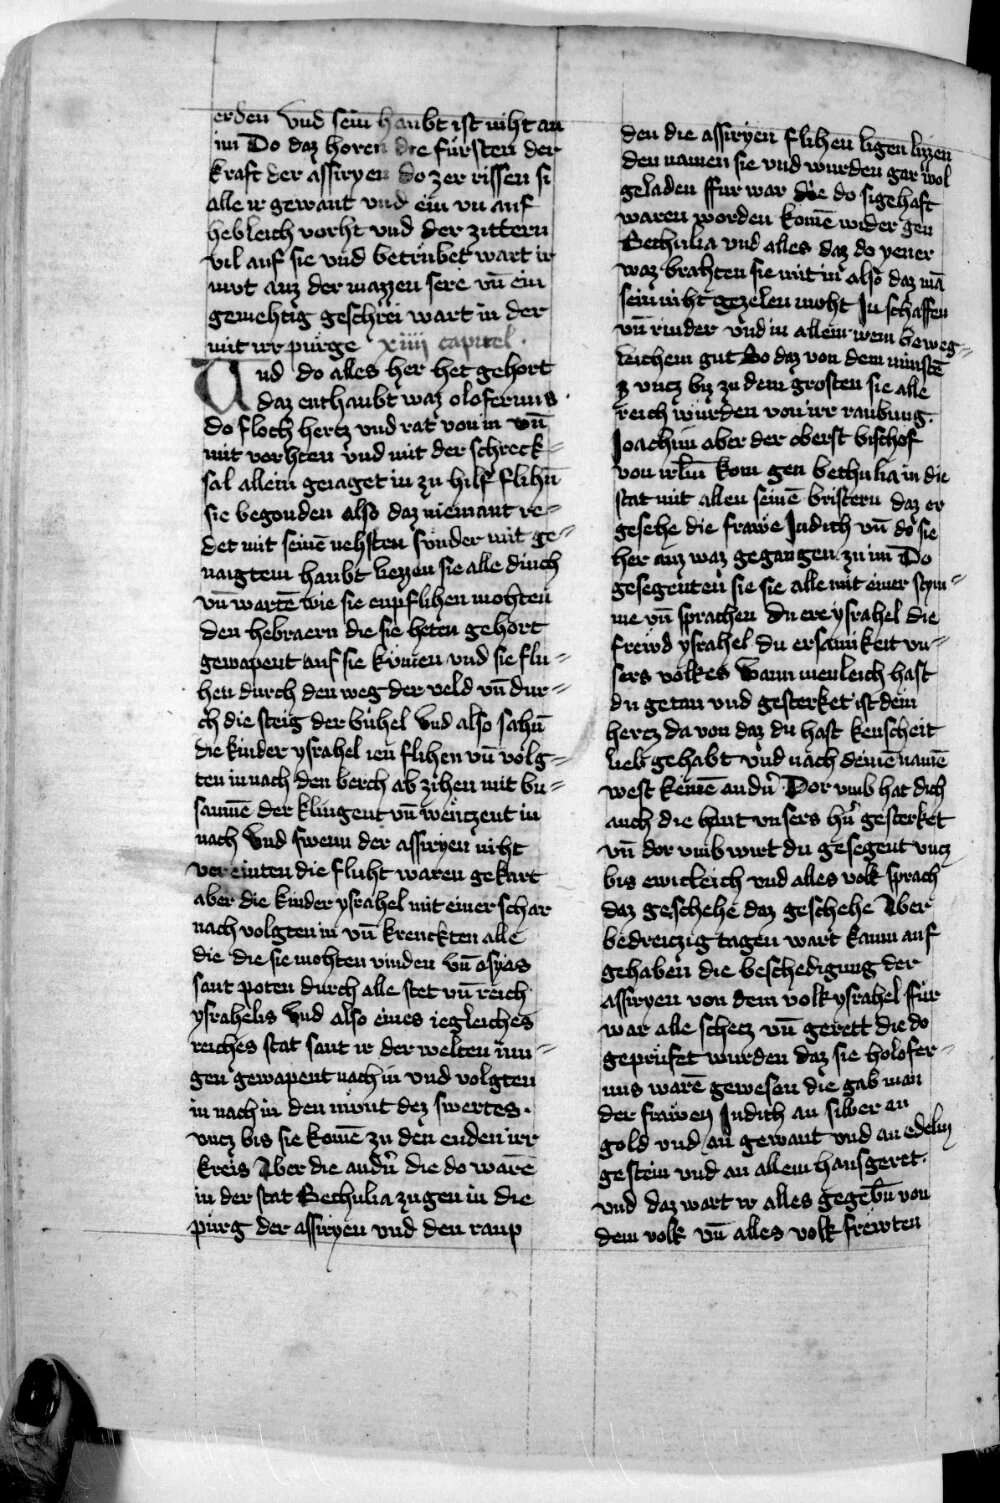 erden Vnd sein haubt ist niht an
im Do daz horen die fürsten der
kraft der assiryen do zer rissen si
alle ir gewant vnd ein vn auf
hebleich vorht vnd der zittern
vil auf sie vnd betrübet wart ir
mvt auz der mazzen sere vn̄ ein
gemehtig geschrei wart in der
mit irr pürge xiiij capitel.
Vnd do alles her het gehort
daz enthaubt waz olofernus.
do floch hertz vnd rat von in vn̄
mit vorhten vnd mit der schreck=
sal allein geiaget in zu hilf flihn̄
sie begonden also daz niemant re=
det mit seinē nehsten sunder mit ge=
naigtem haubt liezzen sie alle dinch
vn̄ wartē wie sie enpflihen mohten
den hebraern die sie heten gehort
gewapent auf sie kvmen vnd sie flu=
hen durch den weg der veld vn̄ dur=
ch die steig der bühel Vnd also sahn̄
die kinder ysrahel ien flihen vn̄ volg=
ten in nach den berch ab zihen mit bu=
saunē der klingent vn̄ wentzent in
nach Vnd swenn der assiryen niht
vereinten die fluht waren gekart
aber die kinder ysrahel mit einer schar
nach volgten in vn̄ krenckten alle
die die sie mohten vinden vn̄ osyas
sant poten durch alle stet vn̄ reich
ysrahelis Vnd also eines iegleiches
reiches stat sant ir der welten iun=
gen gewapent nach in vnd volgten
in nach in den mvnt dez swertes.
vncz bis sie komē zu den enden irr
kreis Aber die andn̄ die do warē
in der stat Bethulia zugen in die
pürg der assiryen vnd den raup
den die assiryen flihen ligen lizzen
den namen sie vnd wurden gar wol
geladen ffür war die do sigehaft
waren worden komē wider gen
Bethulia vnd alles daz do yener
waz brahten sie mit in also daz mā
sein niht gezelen moht In schaffen
vn̄ rinder vnd in allem irem beweg=
leichem gut So daz von dem minstē
vncz biz zu dem grosten sie alle
reich würden von irr raubung.
Joachim aber der oberst bischof
von irlm̄ kom gen bethulia in die
stat mit allen seinē bristern daz er
gesehe die frawe Judith vn̄ do sie
her auz waz gegangen zu im Do
gesegenten sie sie alle mit einer stym=
me vn̄ sprachen du ere ysrahel die
frewd ysrahel du ersamikeit vn=
sers volkes Wann menleich hast
du getan vnd gesterket ist dein
hertz da von daz du hast keuscheit
lieb gehabt Vnd nach deinē namē
west keinē andn̄ Dor vmb hat dich
auch die hant vnsers hn̄ gesterket
vn̄ dor vmb wirt du gesegent vncz
bis ewicleich vnd alles volk sprach
daz geschehe daz geschehe Aber
bedreiczig tagen wart kaum auf
gehaben die beschedigung der
assiryen von dem volk ysrahel ffür
war alle schecz vn̄ gerett die do
geprüfet wurden daz sie holofer=
nus warē gewesen die gab man
der frawen Judith an silber an
gold vnd an gewant vnd an edelm
gestein vnd an allem hausgeret.
vnd daz wart ir alles gegebn̄ von
dem volk vn̄ alles volk frewten